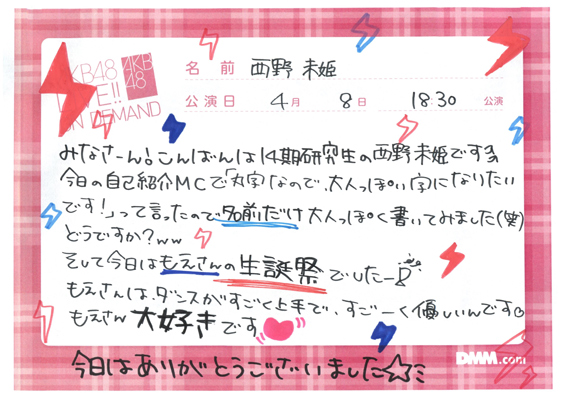 AKB48
LIVE!!
ON DEMAND
AKB
48
名前 西野 未姫
公演日 4月 8日 18:30 公演
みなさーん!こんばんは14期研究生の西野未姫です
今日の自己紹介MCで「丸字なので、大人っぽい字になりたい
です!」って言ったので名前だけ大人っぽく書いてみました(笑)
どうですか?ww
そして今日はもえさんの生誕祭でしたー
もえさんは、ダンスがすごく上手で、すごーく優しいんです
もえさん大好きです
今日はありがとうございました☆ミ
DMM.com